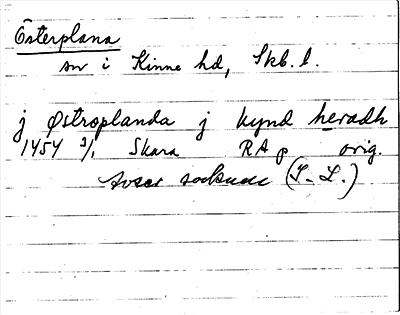 Österplana
sn i Kinne hd, Skb. l.
j Østroplanda j kynd heradh
1454 3/1 Skara RA p orig.
avser socknen (I. L.)